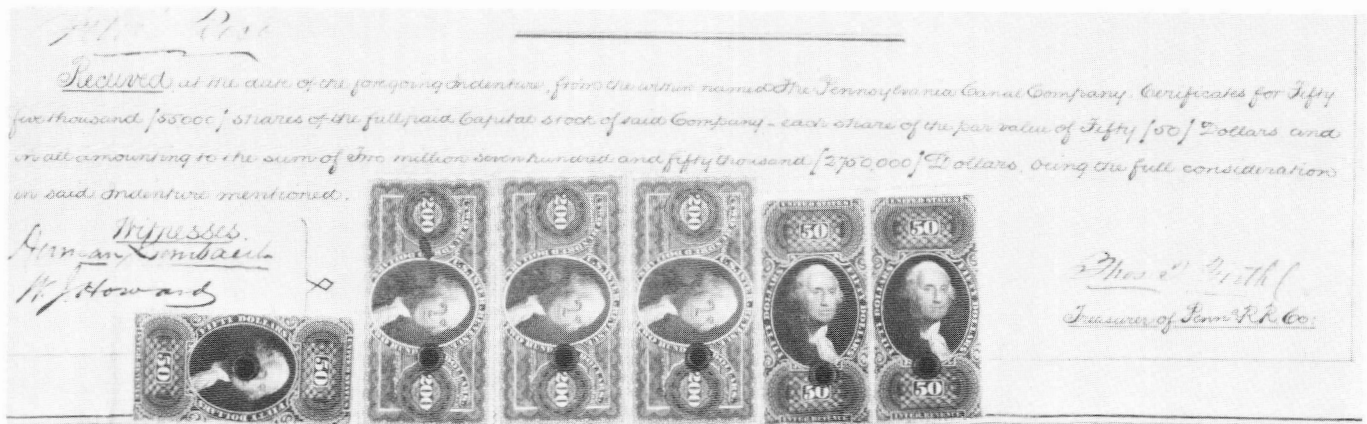 Received at the date of the foregoing Indenture, from the within named The Pennsylvania Canal Company, Cerificates for Fifty
five thousand [55000] shares of the full paid Capital stock of said Company - each share of the par value of Fifty [50] Dollars and
in all amounting to the sum of Two million seven hundred and fifty thousand [2750,000] Dollars, being the full consideration
in said Indenture mentioned.
Witnesses
Herman Lombaert
W. J. Howard
Thos
Treasurer of Penna R R Co:
200 200 200
UNITED STATES UNITED STATES
50 50
FIFTY DOLLARS FIFTY DOLLARS
200 200 200
50 50
INTER. REVENUE INTER. REVENUE
FIFTY DOLLARS
50 50
FIFTY DOLLARS